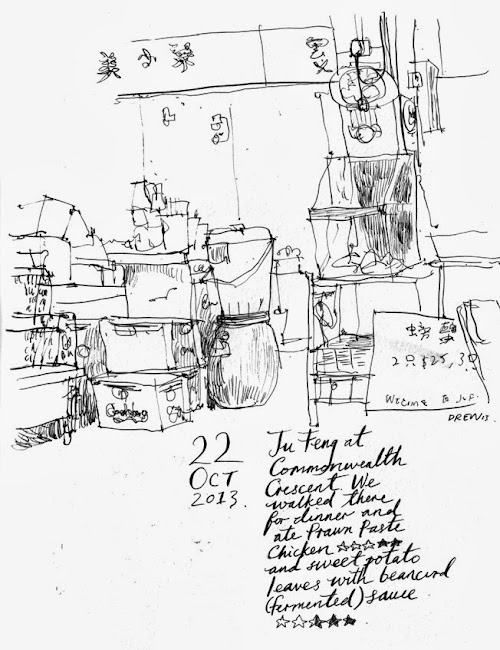 小 菜
2只$25,30
Welcome to J.F.
22
OCT
2013.
Ju Feng at
Commonwealth
Crescent. We
walked there
for dinner and
ate Prawn Paste
Chicken ☆☆☆★★
and sweet potato
leaves with beancurd
(fermented) sauce
☆☆★★★